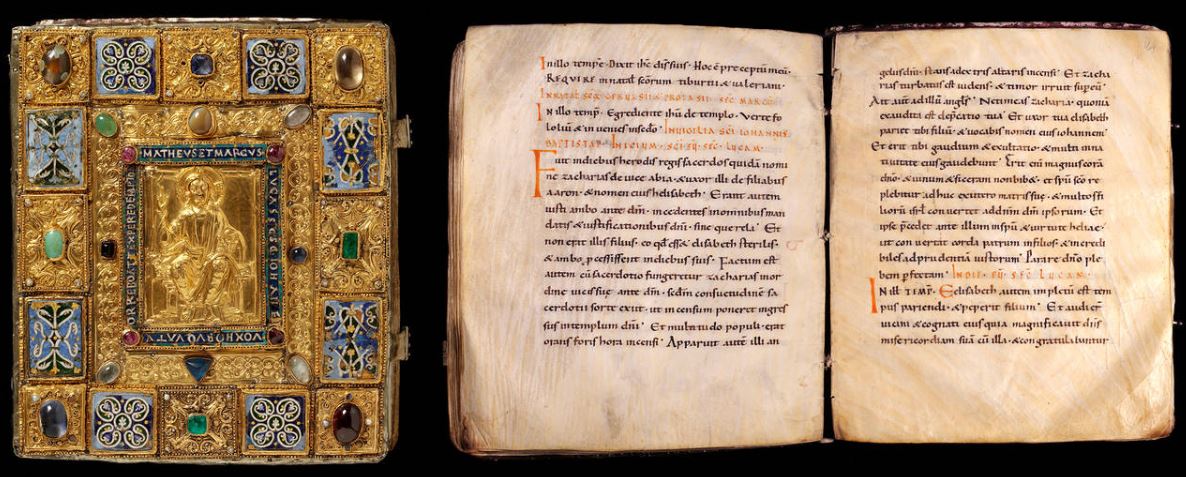 MATHEVS ET MARCVS
VOX HORV QVATV
In illo tempr̄e· Dixit ih̄c discip̄lis suis· Hoc ē preceptū meū·
REQVIRE in natal̄ scōrum tiburtii & valeriani·
IN illo temp̄r· Egrediente ihū de templo· Verte fo
lolvii & invenies in sedo· IN VIGILIA SCĪ IOHANNIS
BAPTISTAE· INICIVM· SCĪ EV̄· SEC̄ LVCAM·
Fuit in diebus herodis regis sacerdos quidā nomi
ne zacharias de vice abia· & uxor illi de filiabus
aaron· & nomen eius helisabeth· Erant autem
iusti ambo ante dm̄· incedentes in omnibus man
datis & iustificationibus dn̄i· sine querela· Et
non erat illis filius· eo qd̄ ess& elisabeth sterilis·
& ambo p̄cessissent in diebus suis· Factum est
autem cū sacerdotio fungeretur zacharias in or
dine vicis suę ante dm̄· secdm̄ consuetudinē sa
cerdotii sorte exiit· ut incensum poneret ingres
sus in templum dn̄i· Et multitudo populi· erat
orans foris hora incensi· Apparuit autē illi an
gelus dn̄i· stans a dextris altaris incensi· Et zacha
rias turbatus est videns· & timor irruit sup eū·
Ait aut ad illū angl̄s· Ne timeas zacharia· quoniā
exaudita est dep̄catio tua· Et uxor tua elisabeth
pariet tibi filiū· & uocabis nomen eius iohannem·
Et erit tibi gaudium & exultatio· & multi in na
tiuitate eius gaudebunt· Erit eni magnus corā
dn̄o· & uinum & siceram non bib&· et spū scō re
plebitur adhuc ex utero matris suę· & multos fi
liorū isrl̄ convertet ad dn̄m dm̄ ipsorum· Et
ipse p̄cedet ante illum in spū & uirtute heliae·
ut convertat corda patrum in filios· & incredi
biles ad prudentiā iustorum· Parare dn̄o ple
bem p̄fectam· IN DIE· EV̄· SEC̄ LVCAM·
IN ILL̄ TEMP̄R· Elisabeth autem impletū est tem
pus pariendi· & peperit filium· Et audierr̄
uicini & cognati eius quia magnificauit dn̄s
misericordiam suā cū illa· & congratulabuntur